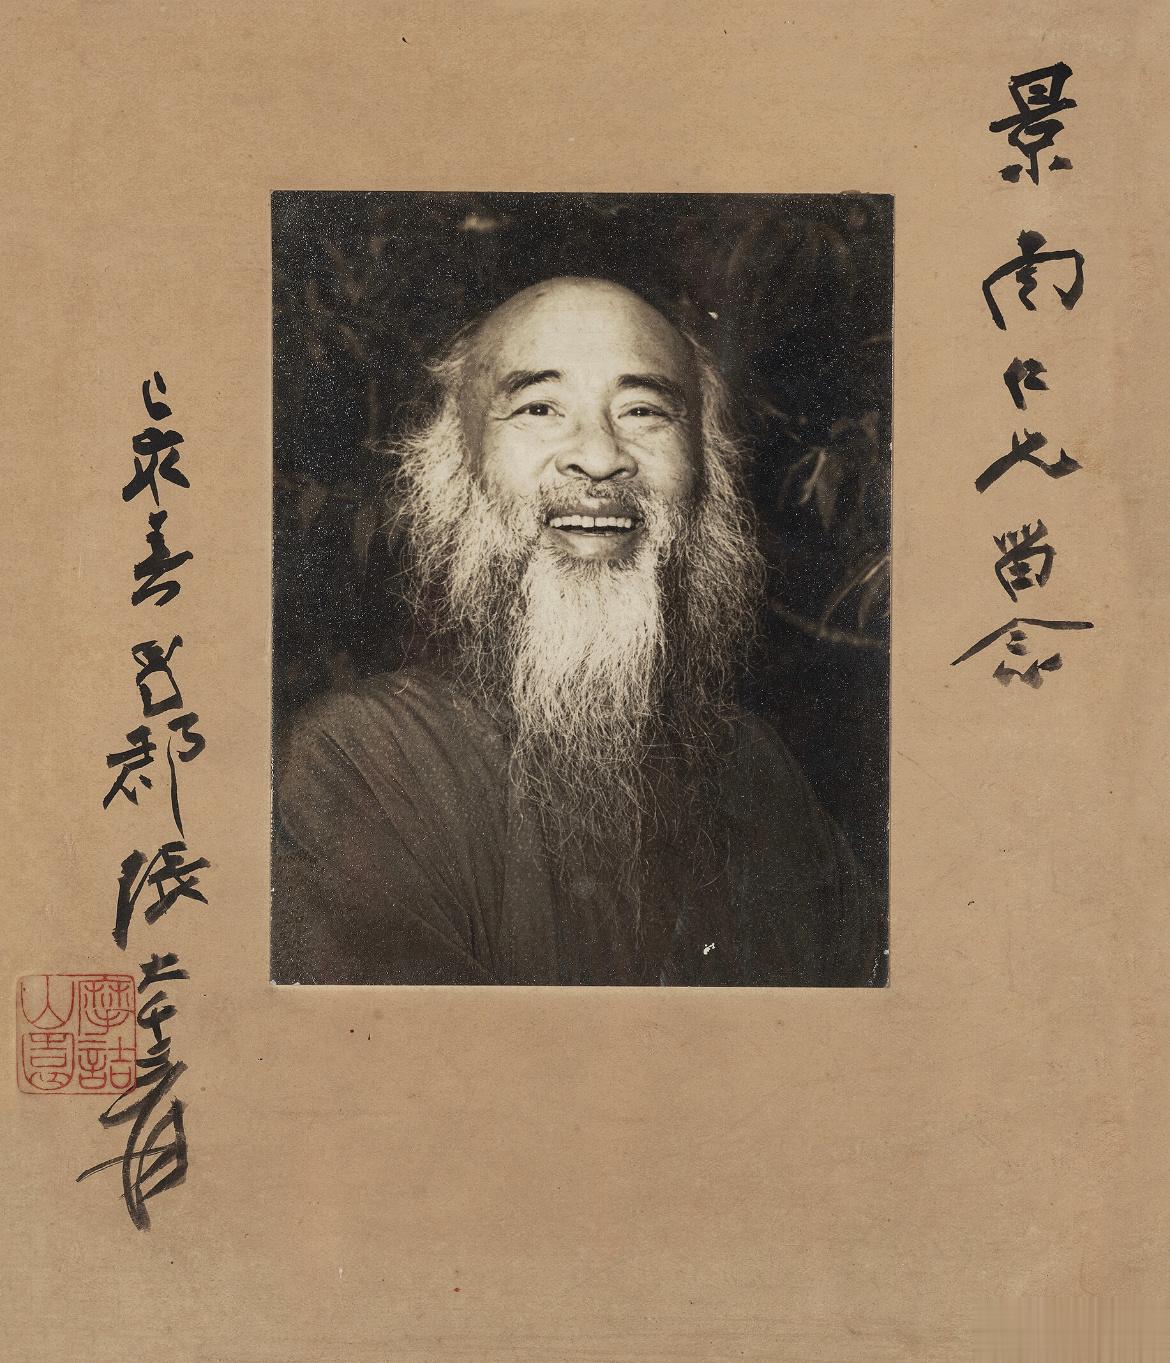 景南仁兄留念
蜀郡張大千爰
摩詰
山園